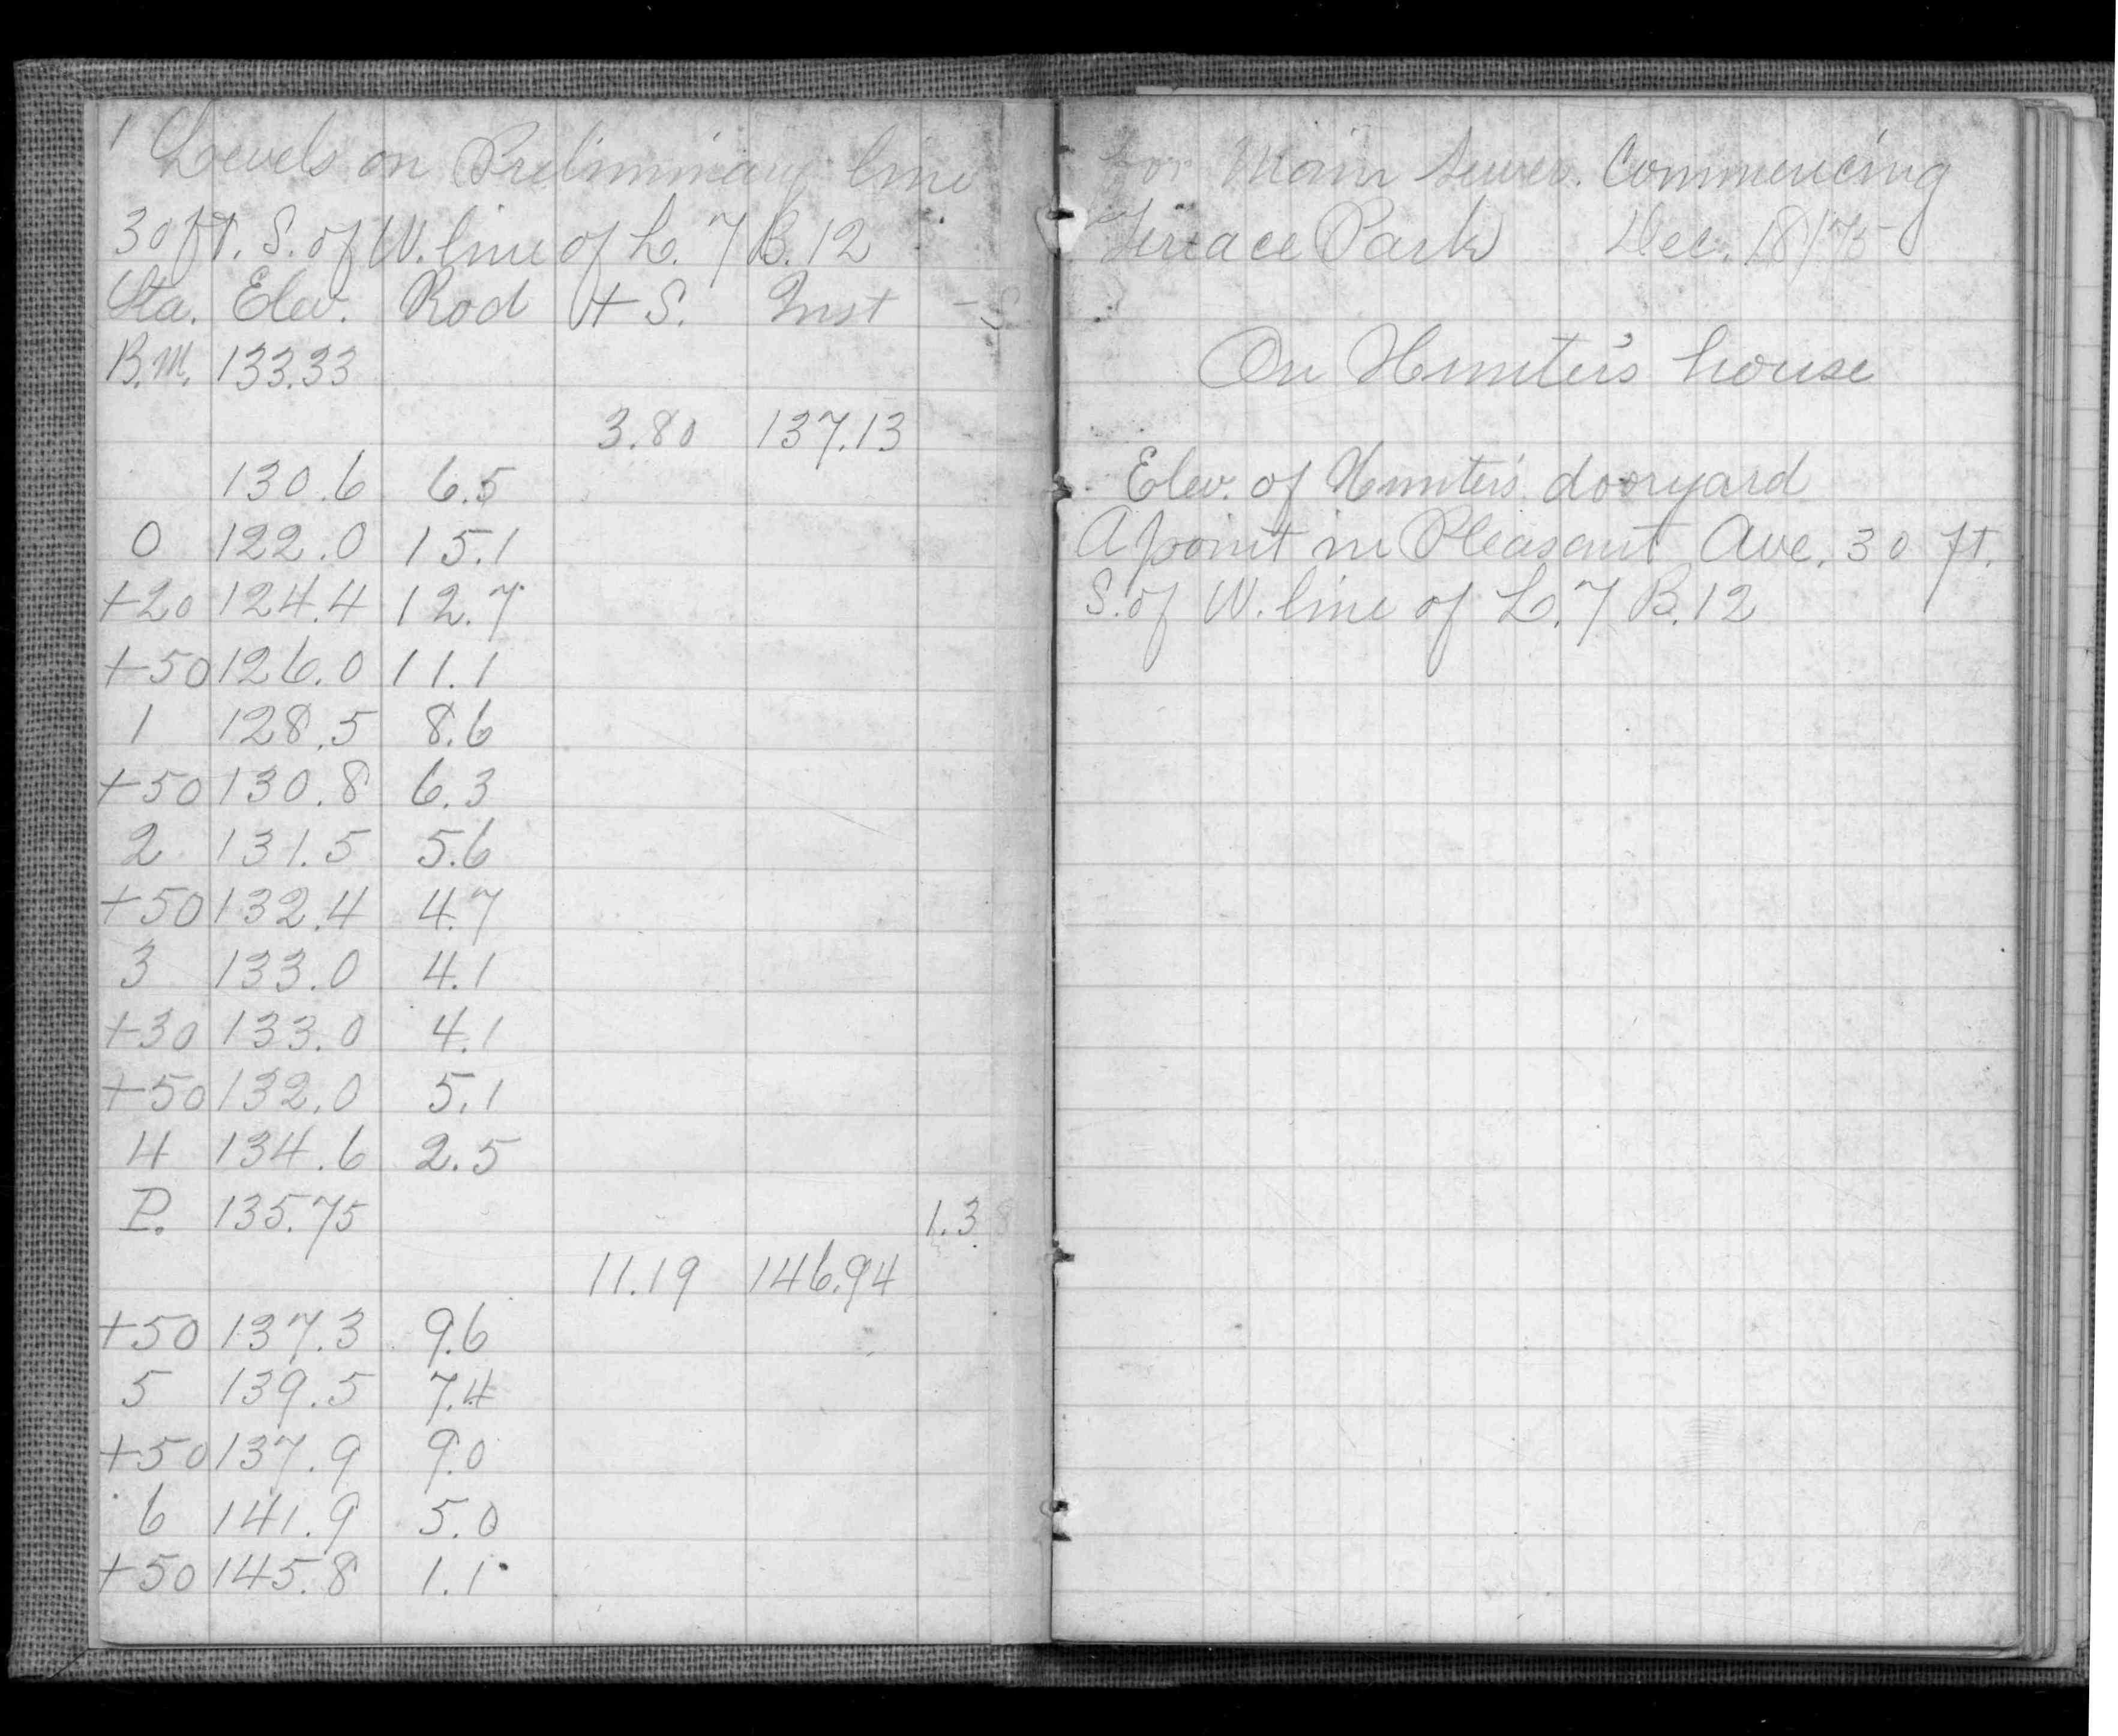 1
Levels on Preliminary line
30 ft. S. of W. line of L. 7 B. 12
Sta. Elev. Rod + S. Inst - S
B.M. 133.33
3.80 137.13
130.6 6.5
0 122.0 15.1
+20 124.4 12.7
+50 126.0 11.1
1 128.5 8.6
+50 130.8 6.3
2 131.5 5.6
+50 132.4 4.7
3 133.0 4.1
+30 133.0 4.1
+50 132.0 5.1
4 134.6 2.5
P. 135.75 1.38
11.19 146.94
+50 137.3 9.6
5 139.5 7.4
+50 137.9 9.0
6 141.9 5.0
+50 145.8 1.1
for Main Sewer. Commencing
Terrace Park Dec. 18/75
On Hunter's house
Elev. of Hunter's dooryard
A point in Pleasant Ave. 30 ft.
S. of W. line of L. 7 B. 12